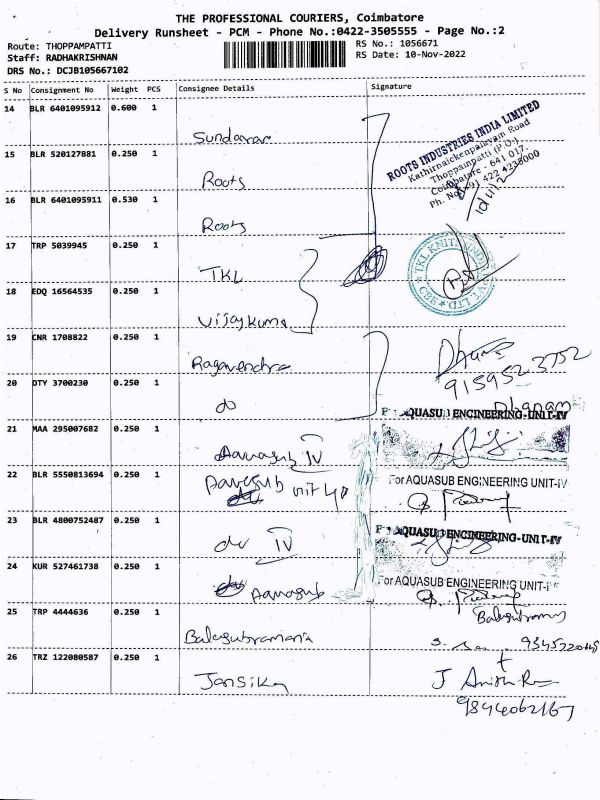 THE PROFESSIONAL COURIERS, Coimbatore
Delivery Runsheet - PCM - Phone No.:0422-3505555 - Page No.:2
Route: THOPPAMPATTI
RS No.: 1056671
Staff: RADHAKRISHNAN
RS Date: 10-Nov-2022
DRS No.: DCJB105667102
S No Consignment No Weight PCS Consignee Details Signature
14 BLR 6401095912 0.600 1
Sundaram
ROOTS INDUSTRIES INDIA LIMITED
Kathirnaickenpalayam Road
Thoppampatti (P.O.)
Coimbatore - 641 017.
15 BLR 520127881 0.250 1
Roots
16 BLR 6401095911 0.530 1
Roots
17 TRP 5039945 0.250 1
TKL
18 EDQ 16564535 0.250 1
Vijaykuma
19 CNR 1708822 0.250 1
Ragavendra
9159523752
20 DTY 3700230 0.250 1
do
Dhanam
AQUASUB ENGINEERING-UNIT-IV
21 MAA 295007682 0.250 1
Aquasub IV
22 BLR 5550813694 0.250 1
Aquasub unit
For AQUASUB ENGINEERING UNIT-IV
23 BLR 4800752487 0.250 1
do IV
AQUASUB ENGINEERING-UNIT-IV
24 KUR 527461738 0.250 1
Aquasub
For AQUASUB ENGINEERING UNIT-IV
25 TRP 4444636 0.250 1
Balasubramani
26 TRZ 122080587 0.250 1
Jansika
9844062167